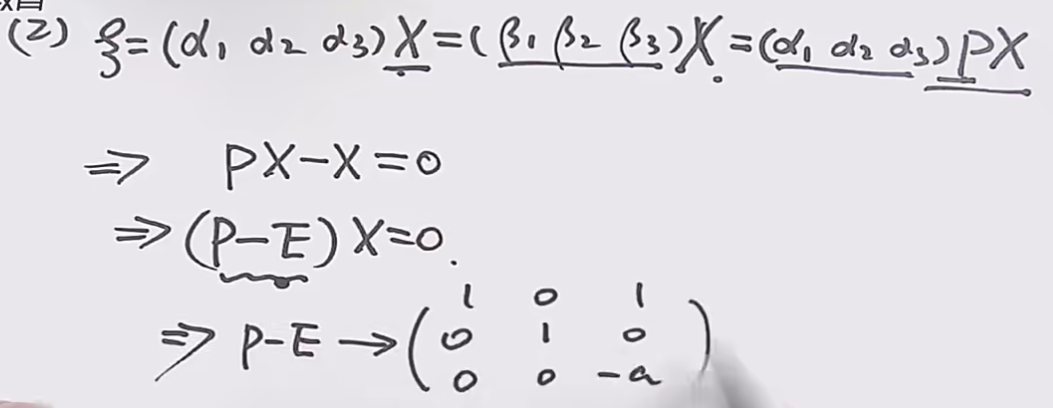 (2) ξ=(α₁ α₂ α₃)X=(β₁ β₂ β₃)X=(α₁ α₂ α₃)PX
⇒ PX-X=0
⇒(P-E)X=0.
1 0 1
⇒ P-E→(0 1 0)
0 0 -a